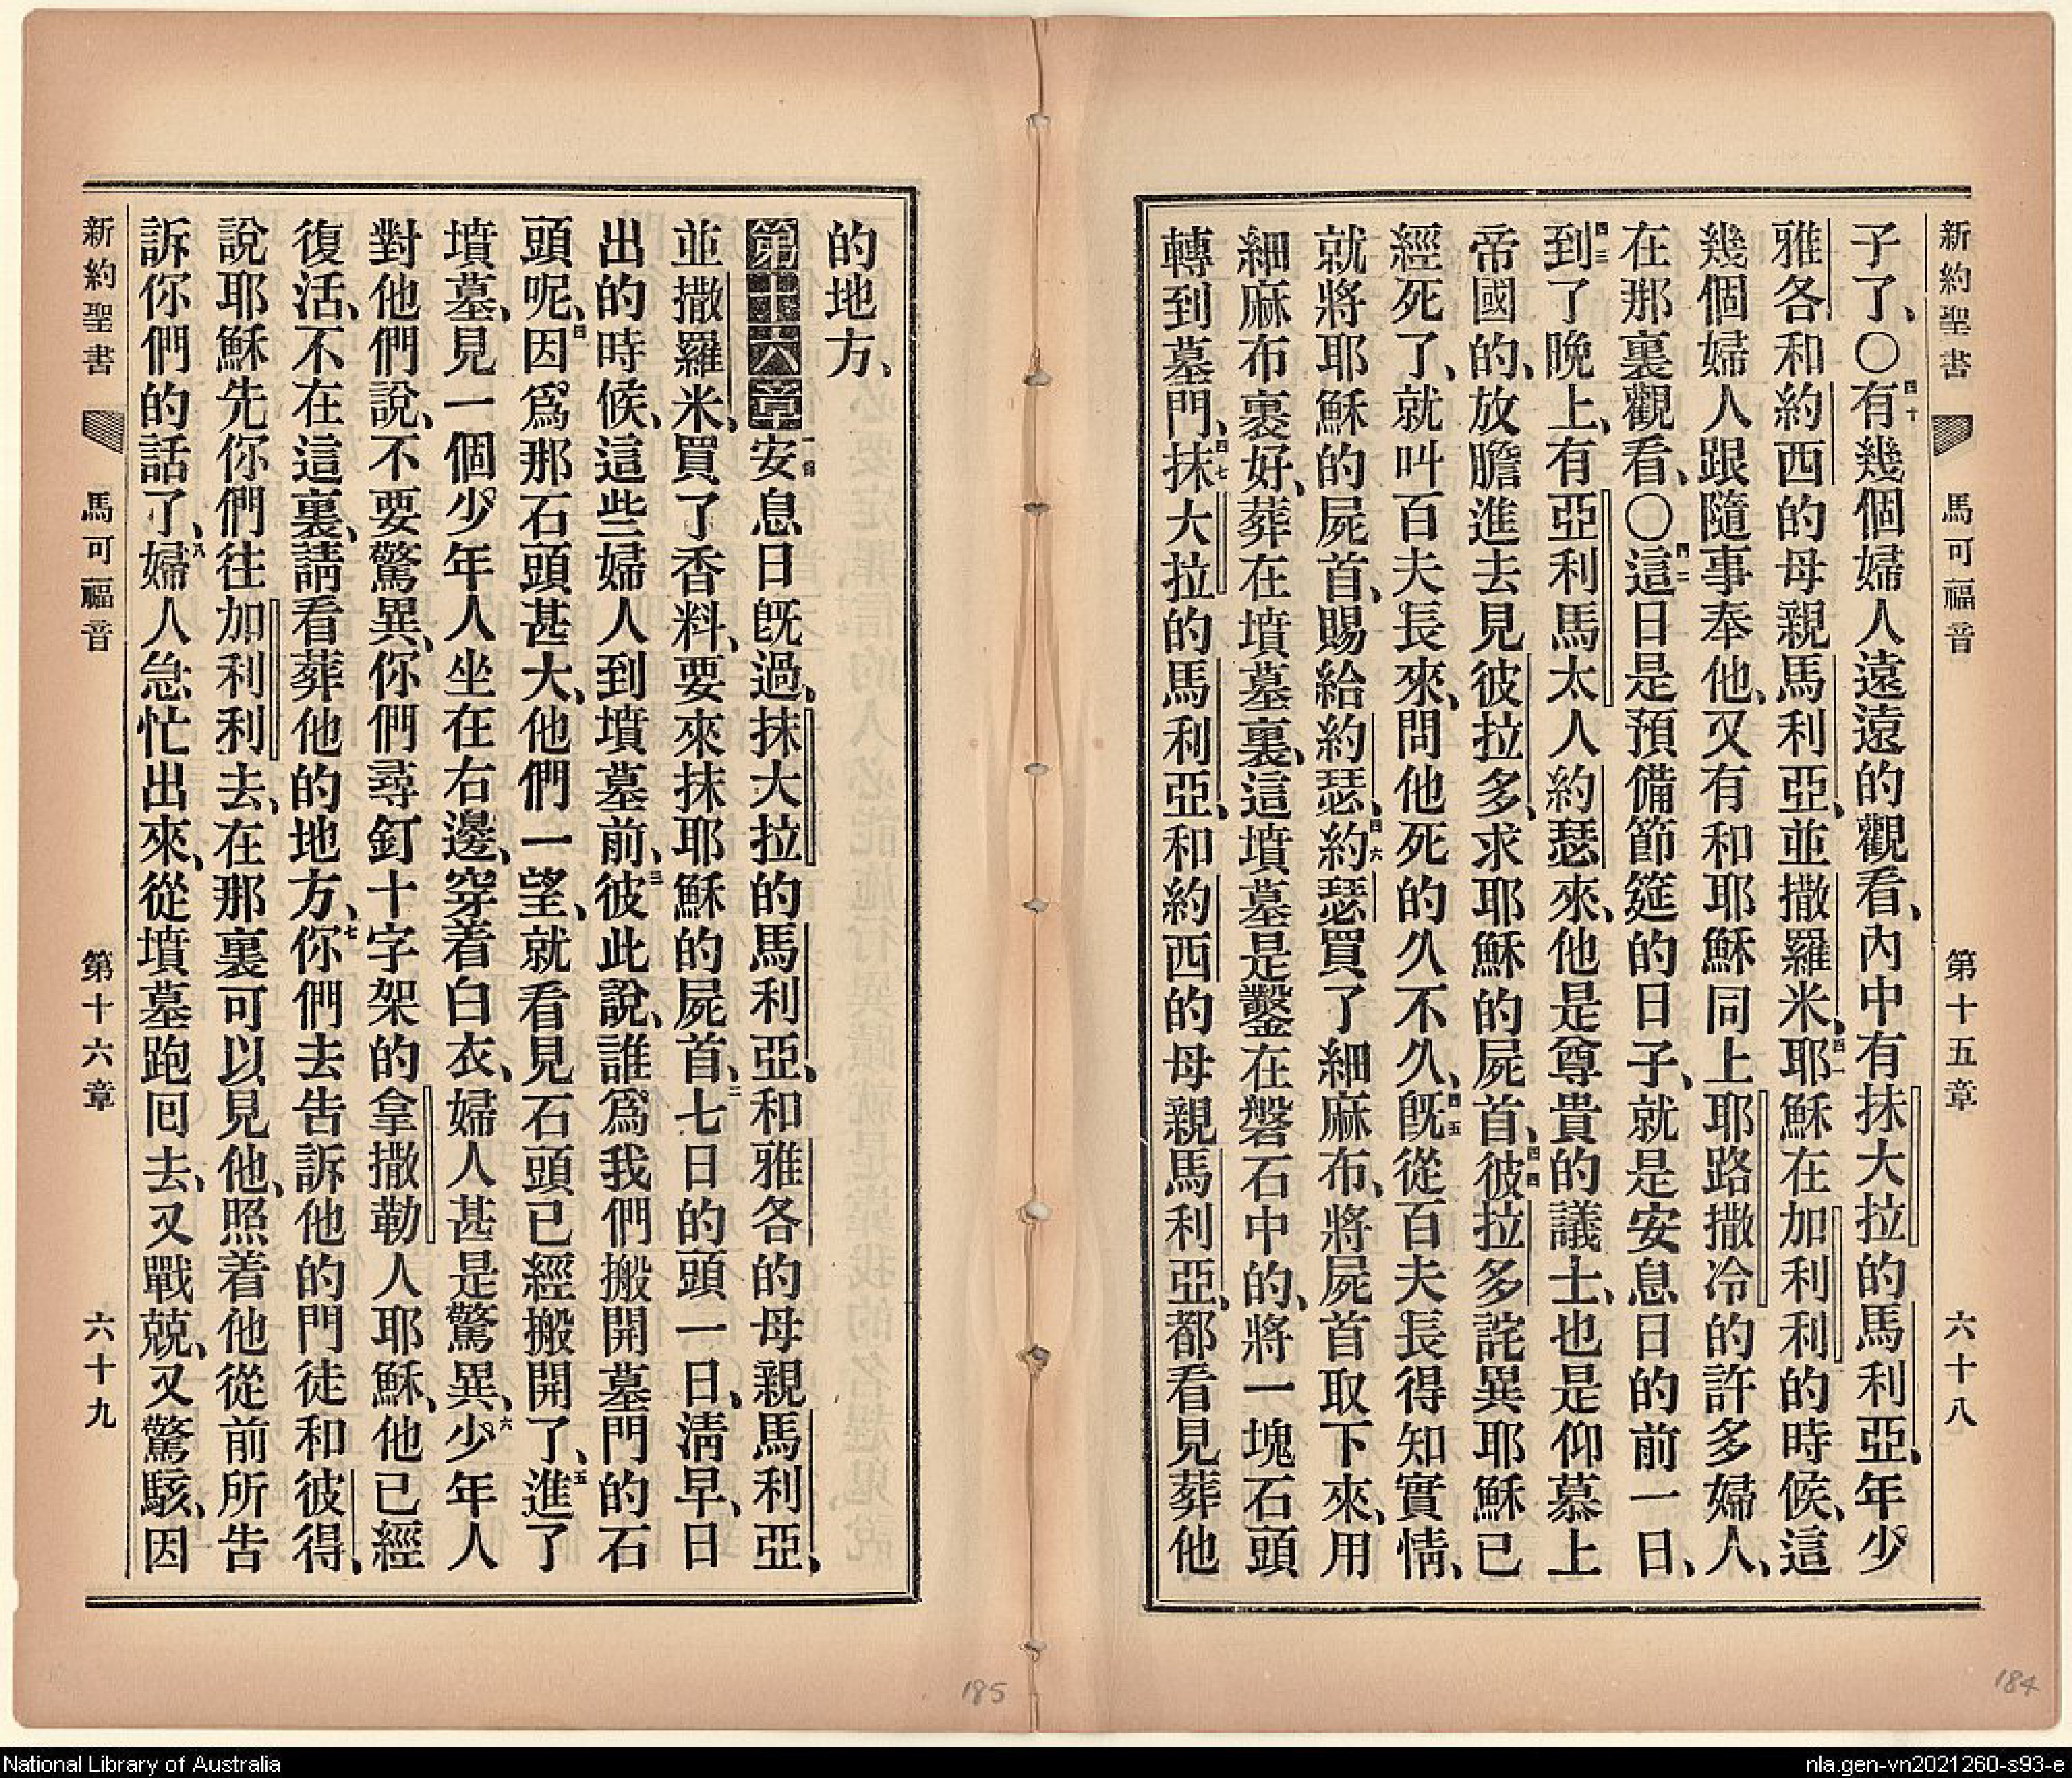 新約聖書 馬可福音 第十五章 六十八
子了、〇四十有幾個婦人遠遠的觀看、內中有抹大拉的馬利亞、年少
雅各和約西的母親馬利亞、並撒羅米、四一耶穌在加利利的時候、這
幾個婦人跟隨事奉他、又有和耶穌同上耶路撒冷的許多婦人、
在那裏觀看、〇四二這日是預備節筵的日子、就是安息日的前一日、
四三到了晚上、有亞利馬太人約瑟來、他是尊貴的議士、也是仰慕上
帝國的、放膽進去見彼拉多、求耶穌的屍首、四四彼拉多詫異耶穌已
經死了、就叫百夫長來、問他死的久不久、四五旣從百夫長得知實情、
就將耶穌的屍首、賜給約瑟、四六約瑟買了細麻布、將屍首取下來、用
細麻布裹好、葬在墳墓裏、這墳墓是鑿在磐石中的、將一塊石頭
轉到墓門、四七抹大拉的馬利亞、和約西的母親馬利亞、都看見葬他
的地方、
第十六章一節安息日旣過、抹大拉的馬利亞、和雅各的母親馬利亞、
並撒羅米、買了香料、要來抹耶穌的屍首、二七日的頭一日、淸早、日
出的時候、這些婦人到墳墓前、三彼此說、誰爲我們搬開墓門的石
頭呢、四因爲那石頭甚大、他們一望、就看見石頭已經搬開了、五進了
墳墓、見一個少年人坐在右邊、穿着白衣、婦人甚是驚異、六少年人
對他們說、不要驚異、你們尋釘十字架的拿撒勒人耶穌、他已經
復活、不在這裏、請看葬他的地方、七你們去告訴他的門徒和彼得、
說耶穌先你們往加利利去、在那裏可以見他、照着他從前所告
訴你們的話了、八婦人急忙出來、從墳墓跑囘去、又戰兢、又驚駭、因
新約聖書 馬可福音 第十六章 六十九
185
184
National Library of Australia
nla.gen-vn2021260-s93-e